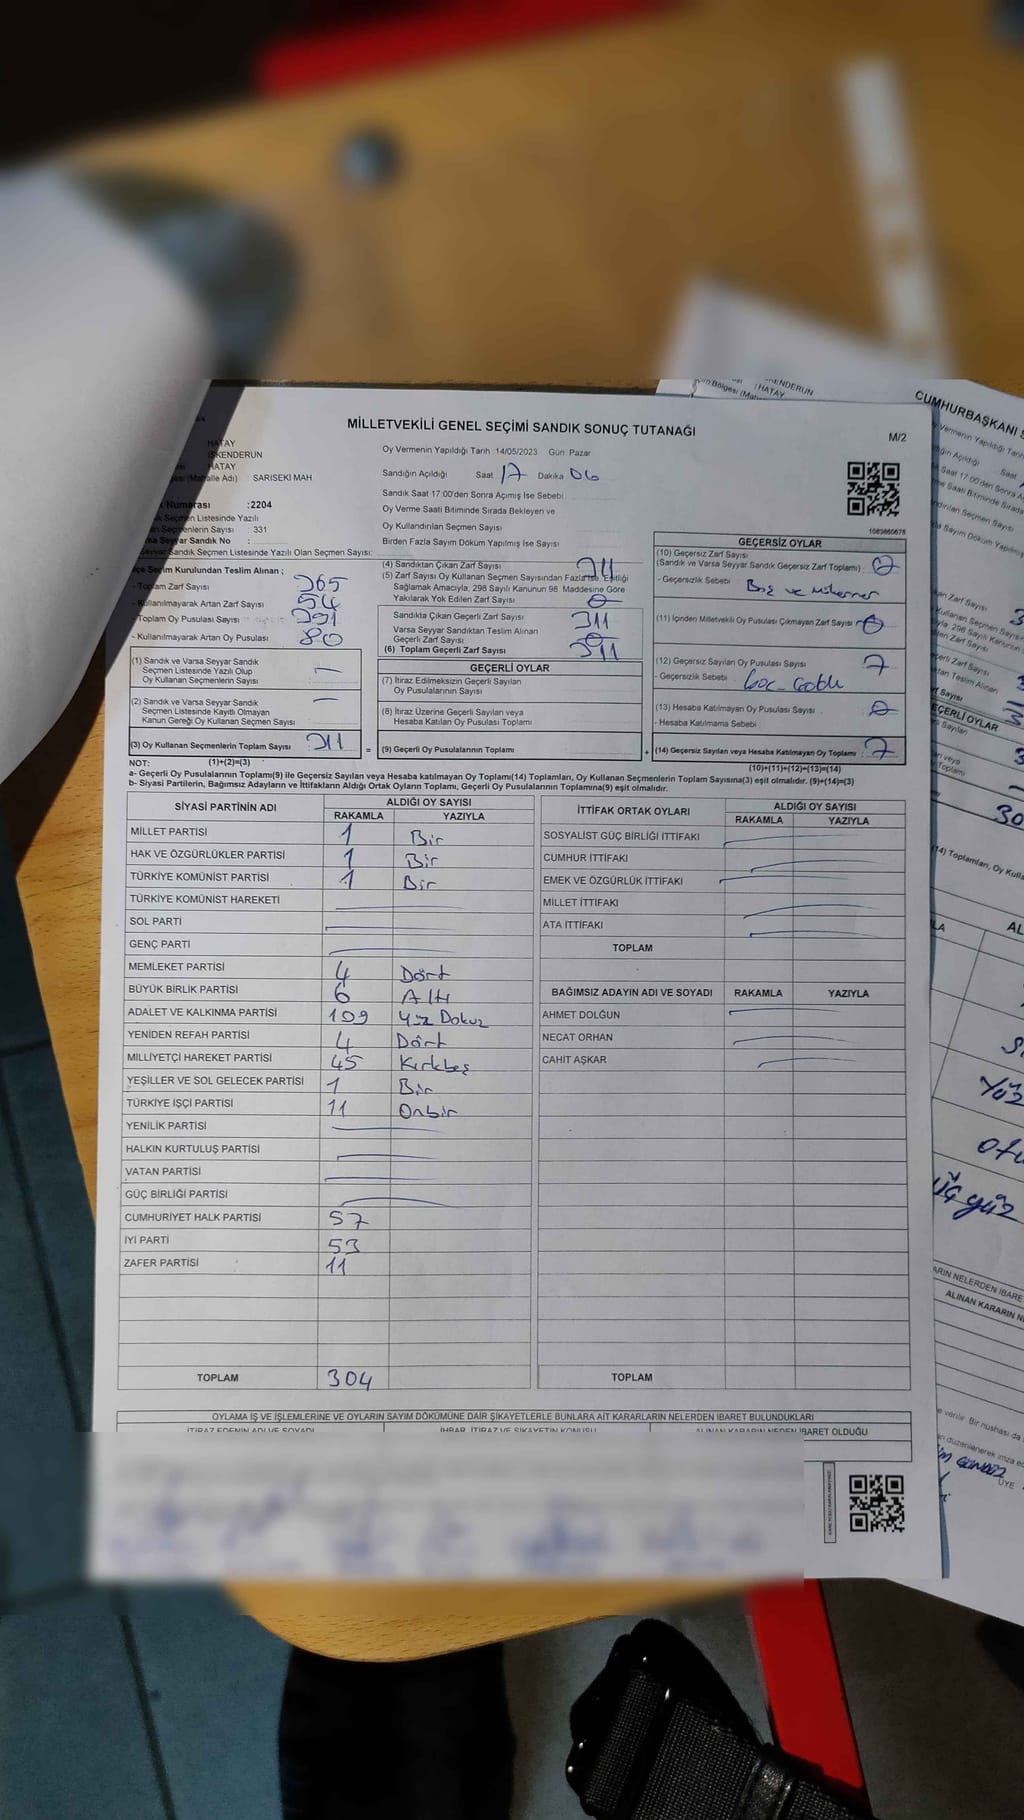 MİLLETVEKİLİ GENEL SEÇİMİ SANDIK SONUÇ TUTANAĞI
M/2
HATAY
İSKENDERUN
HATAY
(Mahalle Adı) SARISEKİ MAH
Numarası :2204
Seçmen Listesinde Yazılı
Seçmenlerin Sayısı : 331
Seyyar Sandık No :
Seyyar Sandık Seçmen Listesinde Yazılı Olan Seçmen Sayısı:
Oy Vermenin Yapıldığı Tarih :14/05/2023 Gün :Pazar
Sandığın Açıldığı Saat 17 Dakika 06
Sandık Saat 17:00'den Sonra Açımış İse Sebebi
Oy Verme Saati Bitiminde Sırada Bekleyen ve
Oy Kullandırılan Seçmen Sayısı
Birden Fazla Sayım Döküm Yapılmış İse Sayısı
1063860678
Seçim Kurulundan Teslim Alınan ;
- Toplam Zarf Sayısı 365
- Kullanılmayarak Artan Zarf Sayısı 54
- Toplam Oy Pusulası Sayısı 391
- Kullanılmayarak Artan Oy Pusulası 80
(1) Sandık ve Varsa Seyyar Sandık
Seçmen Listesinde Yazılı Olup
Oy Kullanan Seçmenlerin Sayısı
(2) Sandık ve Varsa Seyyar Sandık
Seçmen Listesinde Kayıtlı Olmayan
Kanun Gereği Oy Kullanan Seçmen Sayısı
(3) Oy Kullanan Seçmenlerin Toplam Sayısı 311
(4) Sandıktan Çıkan Zarf Sayısı 311
(5) Zarf Sayısı Oy Kullanan Seçmen Sayısından Fazla ise, Eşitliği
Sağlamak Amacıyla, 298 Sayılı Kanunun 98. Maddesine Göre
Yakılarak Yok Edilen Zarf Sayısı 0
Sandıkta Çıkan Geçerli Zarf Sayısı 311
Varsa Seyyar Sandıktan Teslim Alınan
Geçerli Zarf Sayısı 0
(6) Toplam Geçerli Zarf Sayısı 311
GEÇERLİ OYLAR
(7) İtiraz Edilmeksizin Geçerli Sayılan
Oy Pusulalarının Sayısı
(8) İtiraz Üzerine Geçerli Sayılan veya
Hesaba Katılan Oy Pusulası Toplamı
= (9) Geçerli Oy Pusulalarının Toplamı
GEÇERSİZ OYLAR
(10) Geçersiz Zarf Sayısı
(Sandık ve Varsa Seyyar Sandık Geçersiz Zarf Toplamı) : 0
- Geçersizlik Sebebi
(11) İçinden Milletvekili Oy Pusulası Çıkmayan Zarf Sayısı 0
(12) Geçersiz Sayılan Oy Pusulası Sayısı 7
- Geçersizlik Sebebi
(13) Hesaba Katılmayan Oy Pusulası Sayısı 0
- Hesaba Katılmama Sebebi
+ (14) Geçersiz Sayılan veya Hesaba Katılmayan Oy Toplamı 7
NOT: (1)+(2)=(3)
(10)+(11)+(12)+(13)=(14)
a- Geçerli Oy Pusulalarının Toplamı(9) ile Geçersiz Sayılan veya Hesaba katılmayan Oy Toplamı(14) Toplamları, Oy Kullanan Seçmenlerin Toplam Sayısına(3) eşit olmalıdır. (9)+(14)=(3)
b- Siyasi Partilerin, Bağımsız Adayların ve İttifakların Aldığı Ortak Oyların Toplamı, Geçerli Oy Pusulalarının Toplamına(9) eşit olmalıdır.
SİYASİ PARTİNİN ADI ALDIĞI OY SAYISI
RAKAMLA YAZIYLA
MİLLET PARTİSİ 1 Bir
HAK VE ÖZGÜRLÜKLER PARTİSİ 1 Bir
TÜRKİYE KOMÜNİST PARTİSİ 1 Bir
TÜRKİYE KOMÜNİST HAREKETİ
SOL PARTİ
GENÇ PARTİ
MEMLEKET PARTİSİ 4 Dört
BÜYÜK BİRLİK PARTİSİ 6 Altı
ADALET VE KALKINMA PARTİSİ 109 Yüz Dokuz
YENİDEN REFAH PARTİSİ 4 Dört
MİLLİYETÇİ HAREKET PARTİSİ 45 Kırkbeş
YEŞİLLER VE SOL GELECEK PARTİSİ 1 Bir
TÜRKİYE İŞÇİ PARTİSİ 11 Onbir
YENİLİK PARTİSİ
HALKIN KURTULUŞ PARTİSİ
VATAN PARTİSİ
GÜÇ BİRLİĞİ PARTİSİ
CUMHURİYET HALK PARTİSİ 57
İYİ PARTİ 53
ZAFER PARTİSİ 11
TOPLAM 304
İTTİFAK ORTAK OYLARI ALDIĞI OY SAYISI
RAKAMLA YAZIYLA
SOSYALİST GÜÇ BİRLİĞİ İTTİFAKI
CUMHUR İTTİFAKI
EMEK VE ÖZGÜRLÜK İTTİFAKI
MİLLET İTTİFAKI
ATA İTTİFAKI
TOPLAM
BAĞIMSIZ ADAYIN ADI VE SOYADI RAKAMLA YAZIYLA
AHMET DOLĞUN
NECAT ORHAN
CAHİT AŞKAR
TOPLAM
OYLAMA İŞ VE İŞLEMLERİNE VE OYLARIN SAYIM DÖKÜMÜNE DAİR ŞİKAYETLERLE BUNLARA AİT KARARLARIN NELERDEN İBARET BULUNDUKLARI
İTİRAZ EDENİN ADI VE SOYADI İHBAR, İTİRAZ VE ŞİKAYETİN KONUSU ALINAN KARARIN NEDEN İBARET OLDUĞU
HATAY
CUMHURBAŞKANI
ALINAN KARARIN